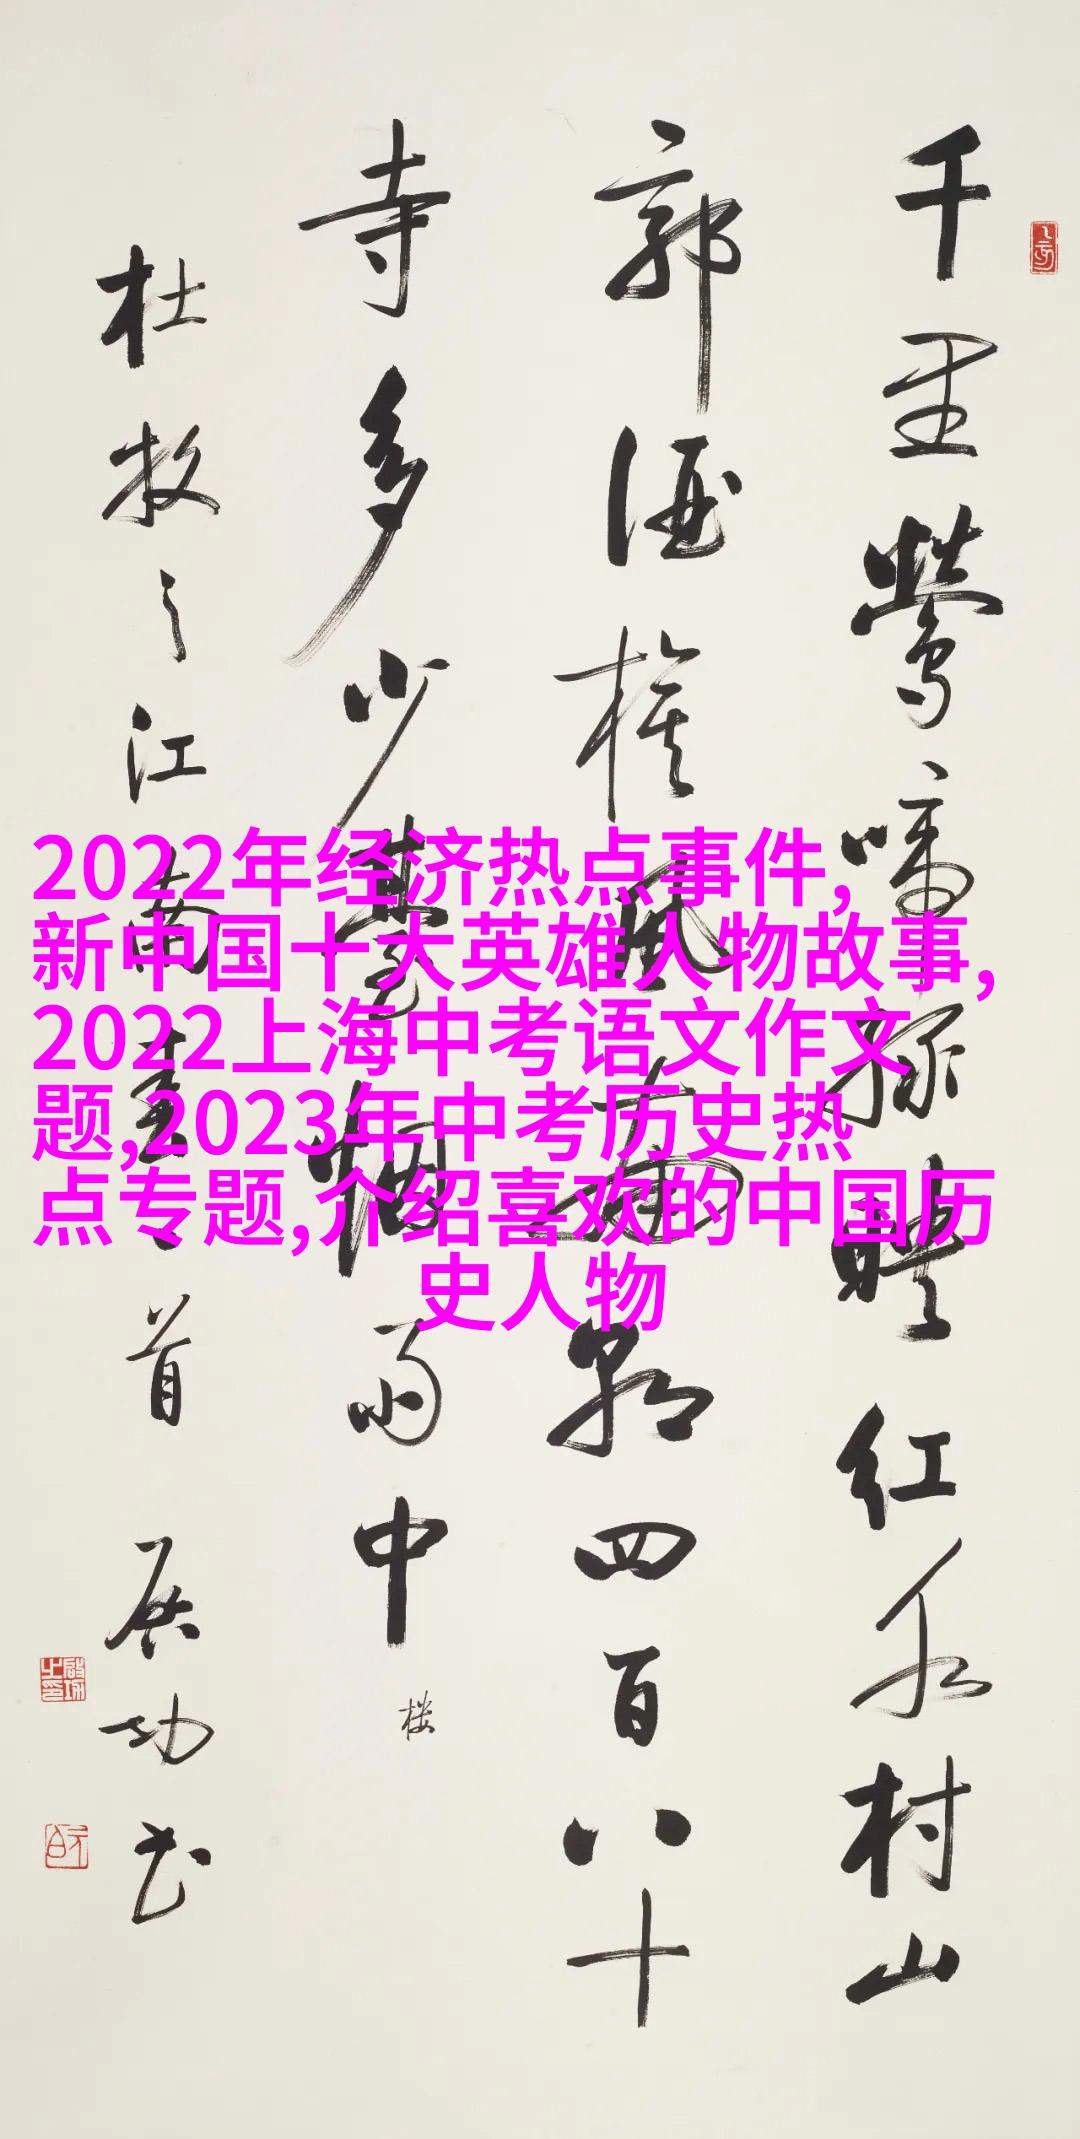 2022年经济热点事件,
新中国十大英雄人物故事,
2022上海中考语文作文
题,2023年中考历史热
点专题,介绍喜欢的中国历
史人物
千里鶯啼緑暎紅水村山
郭酒旗風南朝四百八十
寺多少臺烟雨中
楼
杜牧之江南春一首 启功书